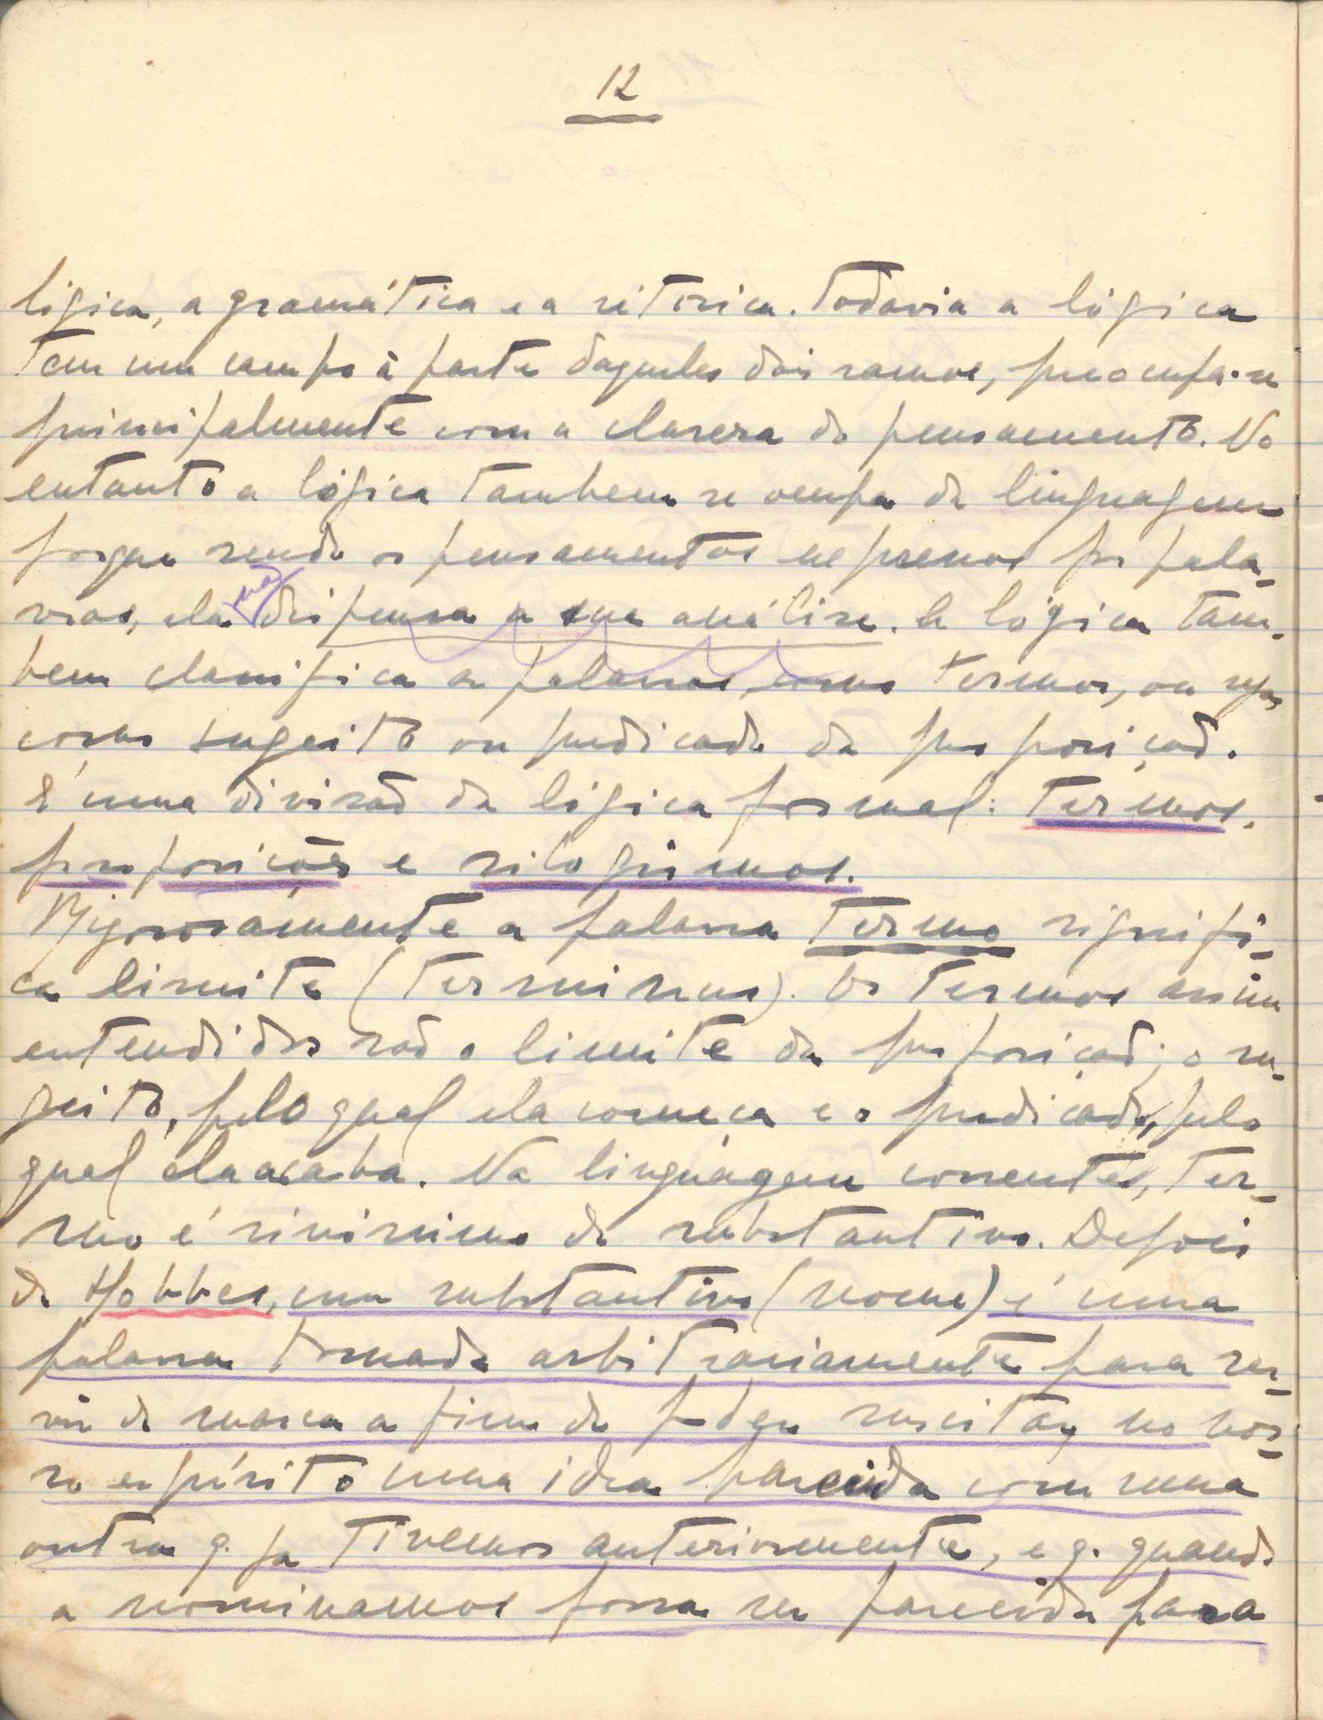 12
lógica, a gramática e a retorica. Todavia a lógica
tem um campo à parte daqueles dois ramos, preocupa-se
principalmente com a clareza do pensamento. No
entanto a lógica tambem se ocupa da linguagem
porque sendo os pensamentos expressos por pala-
vras, ela não dispensa a sua análise. A lógica tam-
bem classifica as palavras como termos, ou seja
como sugeito ou predicado da proposição.
É uma divisão da lógica formal: termos,
proposições e silogismos.
Rigorosamente a palavra termo signifi-
ca limite (terminus). Os termos assim
entendidos são o limite da proposição; o su-
geito, pelo qual ela começa e o predicado, pelo
qual ela acaba. Na linguagem corrente, ter-
mo é sinonimo de substantivo. Depois
de Hobbes, um substantivo (nome) é uma
palavra tomada arbitrariamente para ser-
vir de marca a fim de poder suscitar no nos-
so espírito uma idea parecida com uma
outra q. ja tivemos anteriormente, e q. quando
a nominamos possa ser parecida para